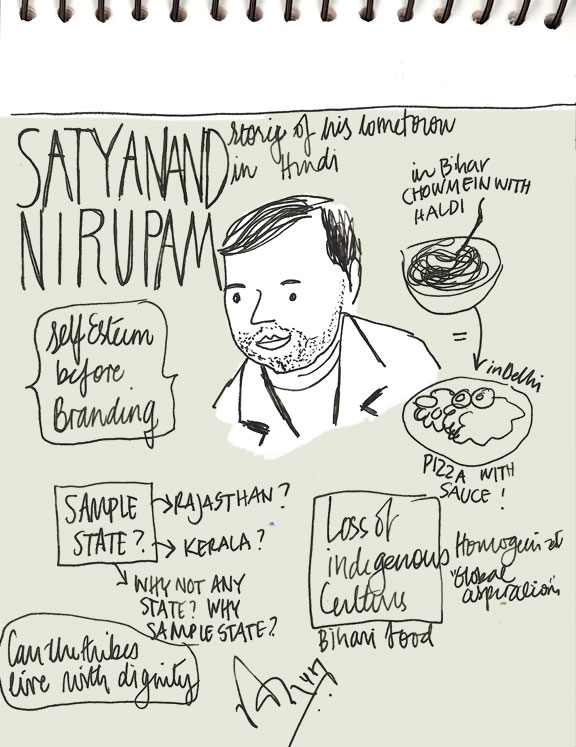 SATYANAND
NIRUPAM
story of his hometown
in Hindi
in Bihar
CHOWMEIN WITH
HALDI
=
in Delhi
PIZZA WITH
SAUCE!
Self Esteem
before
Branding
SAMPLE
STATE?
RAJASTHAN?
KERALA?
WHY NOT ANY
STATE? WHY
SAMPLE STATE?
Can the tribes
live with dignity
Loss of
indigenous
Cultures
Bihari food
"Global
aspirations"